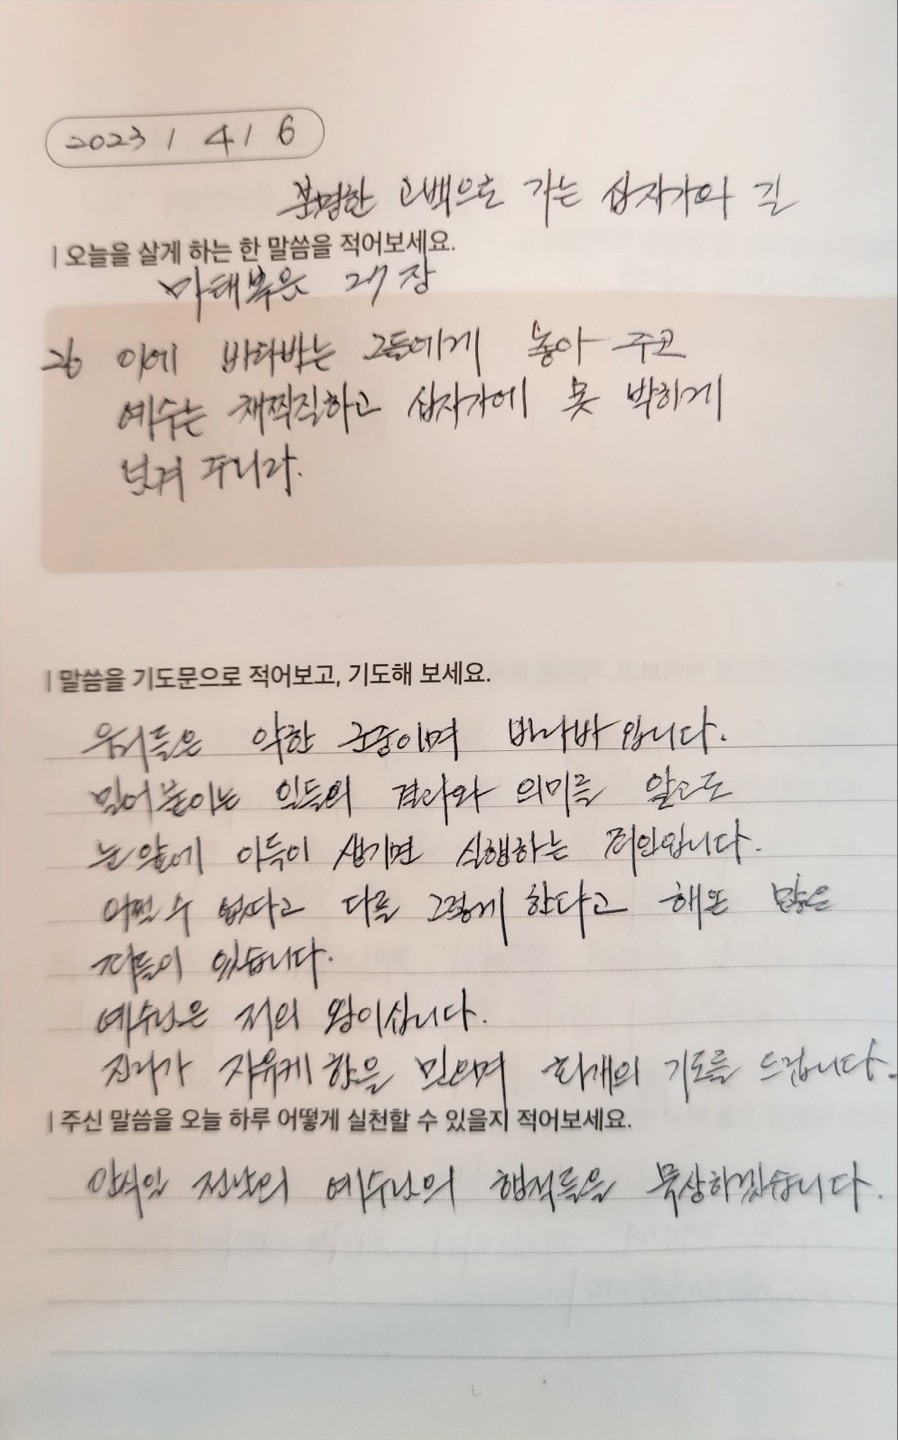 2023 / 4 / 6
분명한 고백으로 가는 십자가의 길
| 오늘을 살게 하는 한 말씀을 적어보세요.
마태복음 27장
26 이에 바라바는 그들에게 놓아 주고
예수는 채찍질하고 십자가에 못 박히게
넘겨 주니라.
| 말씀을 기도문으로 적어보고, 기도해 보세요.
우리들은 악한 군중이며 바라바입니다.
밀어붙이는 일들의 결과와 의미를 알고도
눈앞에 이득이 생기면 실행하는 죄인입니다.
어쩔 수 없다고 다들 그렇게 한다고 해온 많은
죄들이 있습니다.
예수님은 저의 왕이십니다.
진리가 자유케 함을 믿으며 회개의 기도를 드립니다.
| 주신 말씀을 오늘 하루 어떻게 실천할 수 있을지 적어보세요.
안식일 전날의 예수님의 행적들을 묵상하겠습니다.